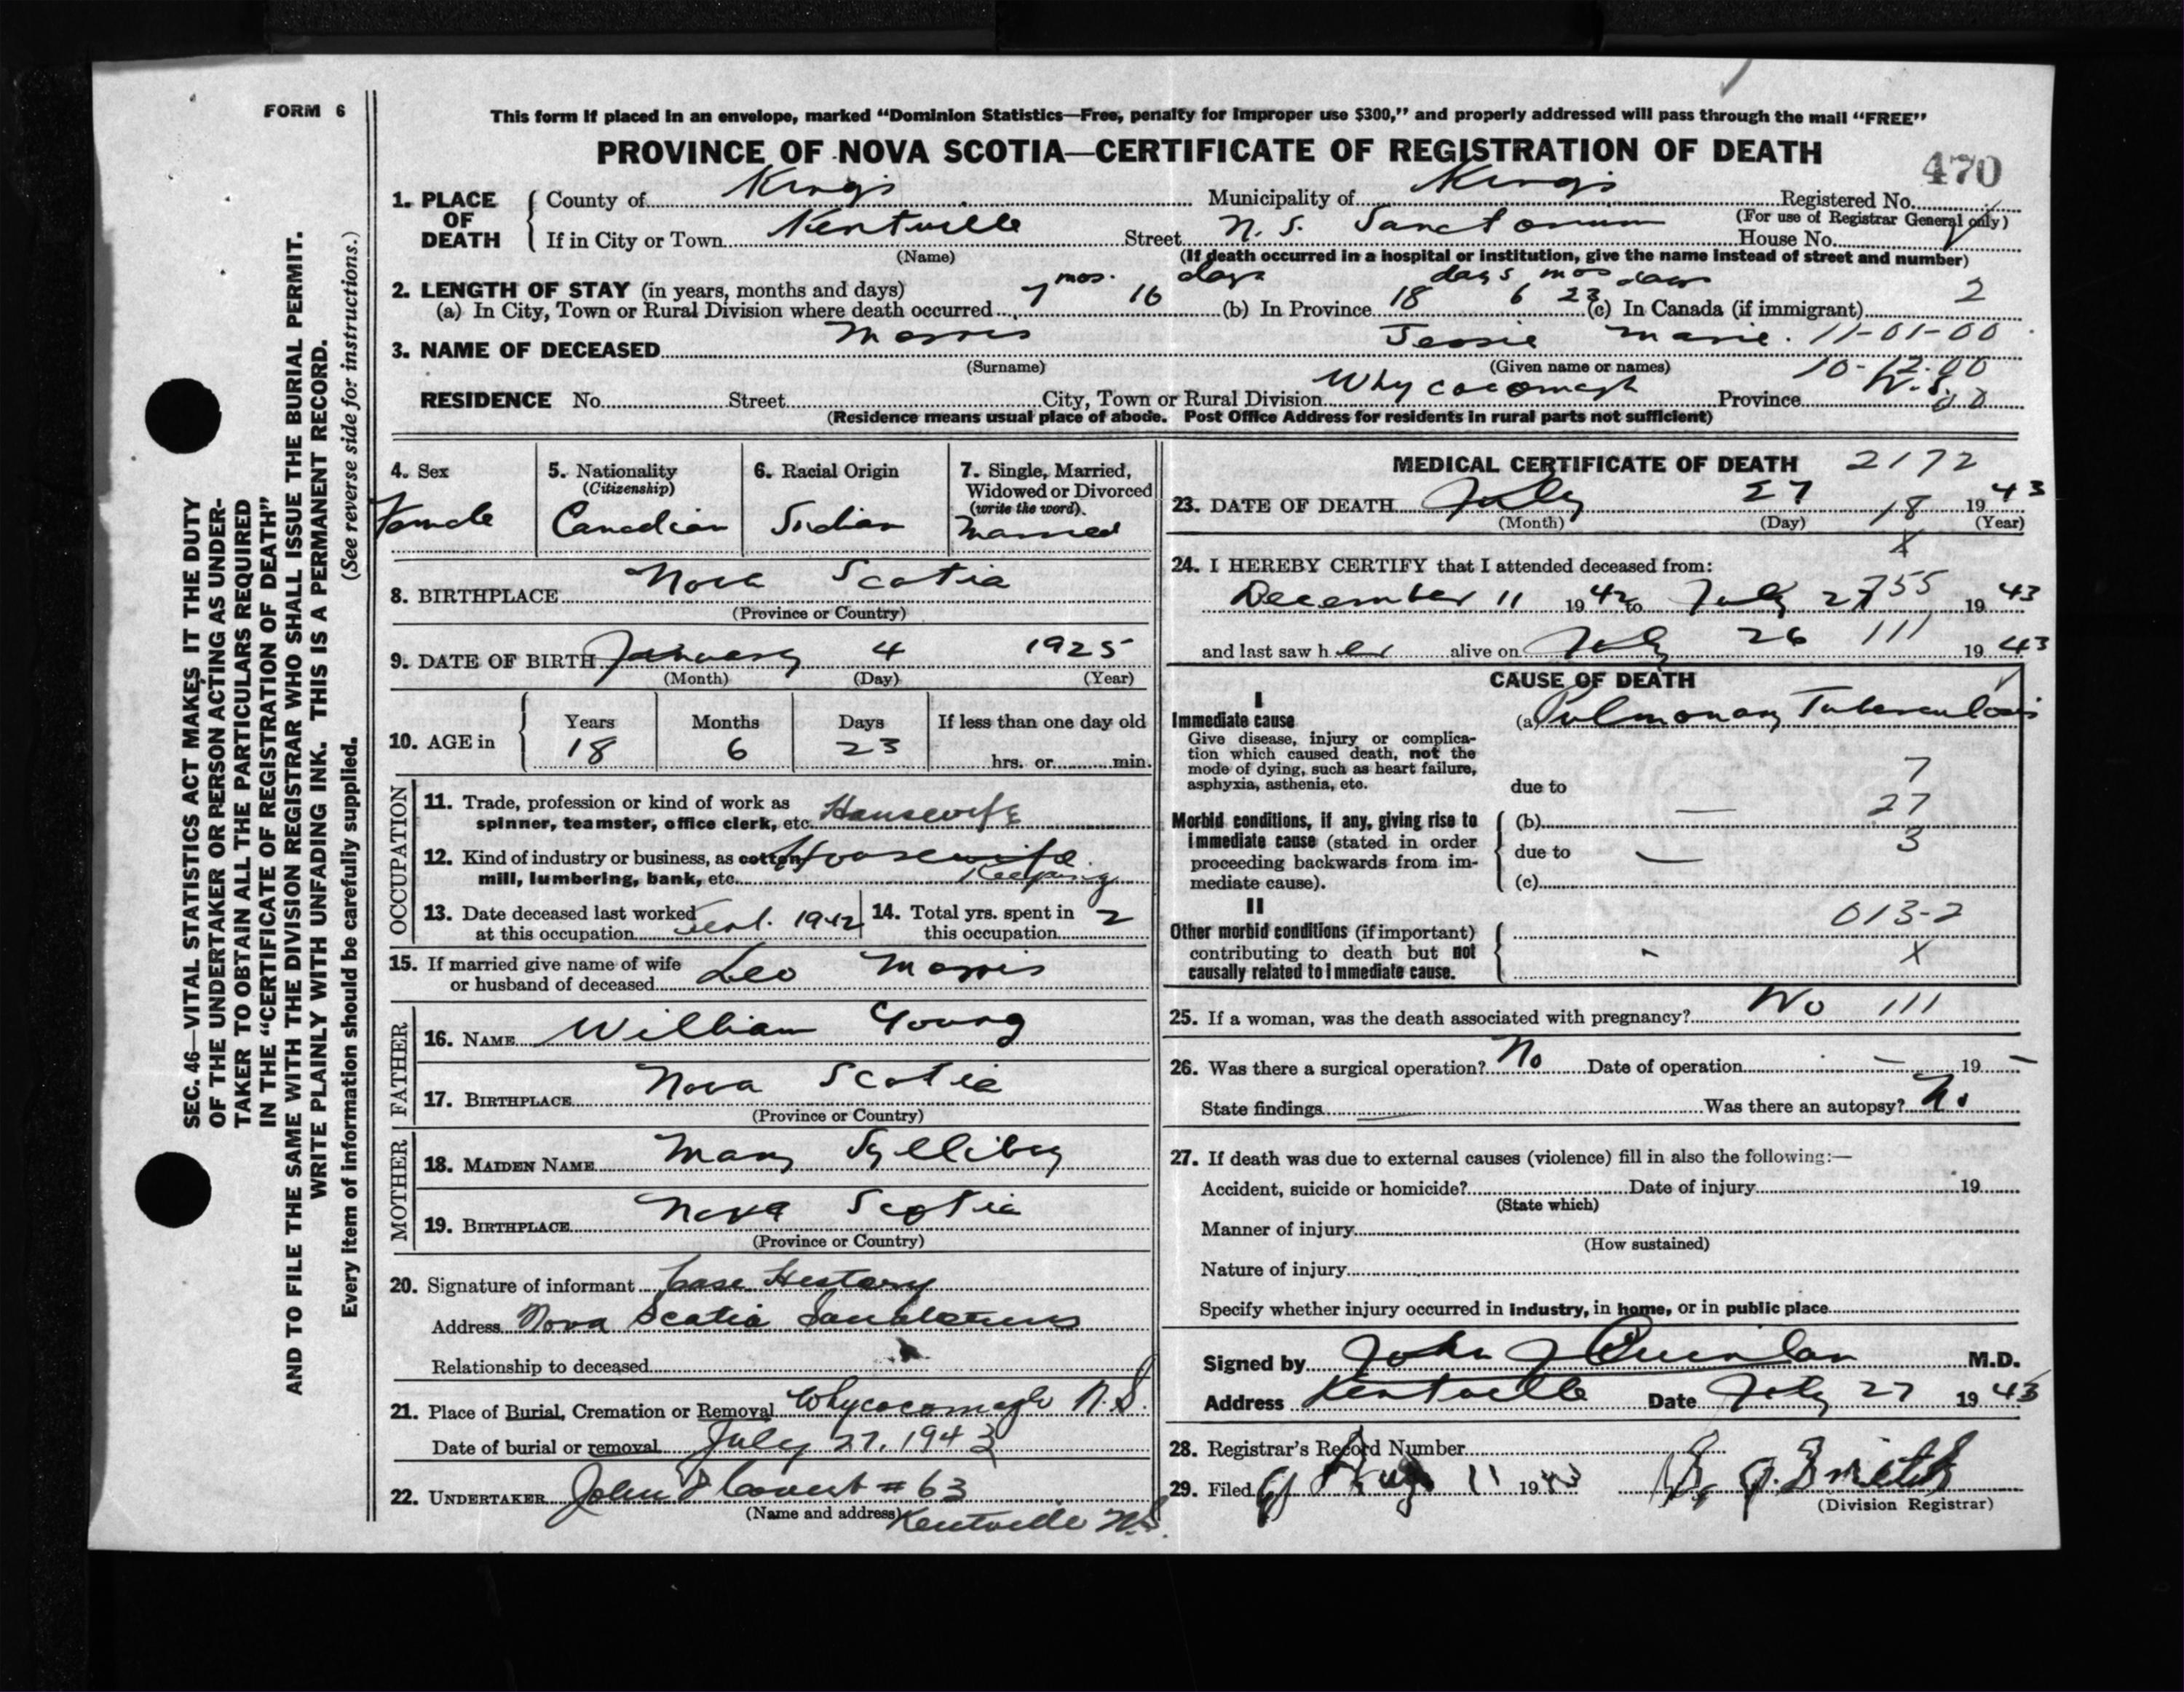 FORM 6
This form if placed in an envelope, marked “Dominion Statistics—Free, penalty for improper use $300,” and properly addressed will pass through the mail “FREE”
PROVINCE OF NOVA SCOTIA—CERTIFICATE OF REGISTRATION OF DEATH
470
1. PLACE OF DEATH
County of Kings Municipality of Kings Registered No.
(For use of Registrar General only)
If in City or Town Kentville Street N. S. Sanctorium House No.
(Name) (If death occurred in a hospital or institution, give the name instead of street and number)
2. LENGTH OF STAY (in years, months and days)
(a) In City, Town or Rural Division where death occurred 7 mos. 16 days (b) In Province 18 days 6 mos 23 days (c) In Canada (if immigrant) 2
3. NAME OF DECEASED Morris Jessie Marie. 11-01-00
(Surname) (Given name or names) 10-12-00
RESIDENCE No. Street City, Town or Rural Division Whycocomagh Province N.S. 00
(Residence means usual place of abode. Post Office Address for residents in rural parts not sufficient)
4. Sex
Female
5. Nationality
(Citizenship)
Canadian
6. Racial Origin
Indian
7. Single, Married,
Widowed or Divorced
(write the word).
Married
8. BIRTHPLACE Nova Scotia
(Province or Country)
9. DATE OF BIRTH January 4 1925
(Month) (Day) (Year)
10. AGE in
Years Months Days If less than one day old
18 6 23 hrs. or min.
OCCUPATION
11. Trade, profession or kind of work as
spinner, teamster, office clerk, etc. Housewife
12. Kind of industry or business, as cotton Housewife
mill, lumbering, bank, etc. Keeping
13. Date deceased last worked
at this occupation Sept. 1942
14. Total yrs. spent in
this occupation 2
15. If married give name of wife
or husband of deceased Leo Morris
FATHER
16. NAME William Young
17. BIRTHPLACE Nova Scotia
(Province or Country)
MOTHER
18. MAIDEN NAME Mary Sylliboy
19. BIRTHPLACE Nova Scotia
(Province or Country)
20. Signature of informant Case History
Address Nova Scotia Sanatorium
Relationship to deceased
21. Place of Burial, Cremation or Removal Whycocomagh N.S.
Date of burial or removal July 27, 1943
22. UNDERTAKER John # 63
(Name and address) Kentville N.S.
MEDICAL CERTIFICATE OF DEATH 2172
23. DATE OF DEATH July 27 18 1943
(Month) (Day) (Year)
X
24. I HEREBY CERTIFY that I attended deceased from:
December 11 1942 to July 27 55 1943
and last saw her alive on July 26 111 1943
CAUSE OF DEATH
I
Immediate cause
Give disease, injury or complication
tion which caused death, not the
mode of dying, such as heart failure,
asphyxia, asthenia, etc.
(a) Pulmonary Tuberculosis
7
due to
Morbid conditions, if any, giving rise to
immediate cause (stated in order
proceeding backwards from im-
mediate cause).
(b) — 27
due to — 3
(c)
II
Other morbid conditions (if important)
contributing to death but not
causally related to immediate cause.
013-2
- X
25. If a woman, was the death associated with pregnancy? No 111
26. Was there a surgical operation? No Date of operation — 19 —
State findings — Was there an autopsy? No
27. If death was due to external causes (violence) fill in also the following:—
Accident, suicide or homicide? Date of injury 19
(State which)
Manner of injury
(How sustained)
Nature of injury
Specify whether injury occurred in industry, in home, or in public place
Signed by John J Quinlan M.D.
Address Kentville Date July 27 1943
28. Registrar's Record Number
29. Filed Aug 11 1943
(Division Registrar)
SEC. 46—VITAL STATISTICS ACT MAKES IT THE DUTY
OF THE UNDERTAKER OR PERSON ACTING AS UNDER-
TAKER TO OBTAIN ALL THE PARTICULARS REQUIRED
IN THE “CERTIFICATE OF REGISTRATION OF DEATH”
AND TO FILE THE SAME WITH THE DIVISION REGISTRAR WHO SHALL ISSUE THE BURIAL PERMIT.
WRITE PLAINLY WITH UNFADING INK. THIS IS A PERMANENT RECORD.
Every item of information should be carefully supplied. (See reverse side for instructions.)